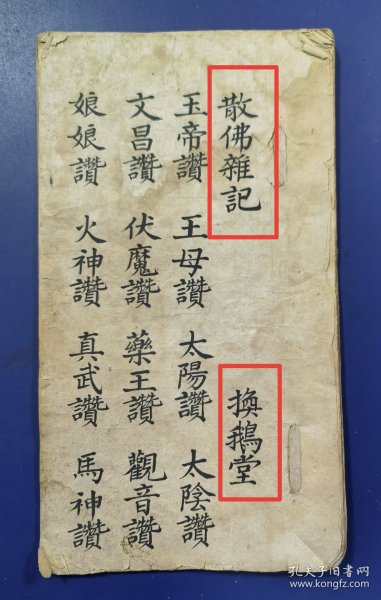 散佛雜記 換鵝堂
玉帝讚 王母讚 太陽讚 太陰讚
文昌讚 伏魔讚 藥王讚 觀音讚
娘娘讚 火神讚 真武讚 馬神讚
孔夫子旧书网
www.kongfz.com